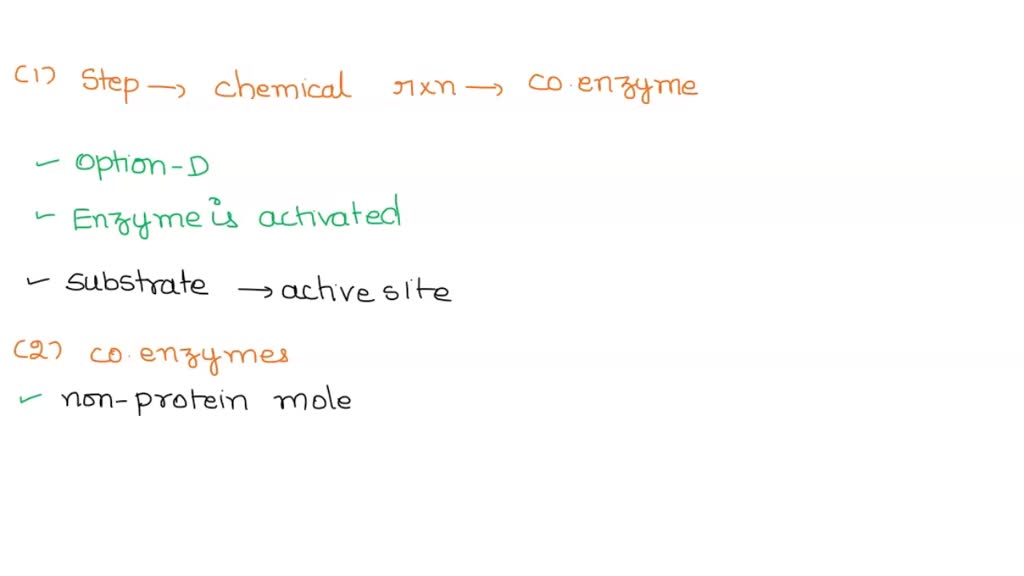 (1) Step → chemical rxn → co.enzyme
✓ option-D
✓ Enzyme is activated
✓ substrate → active site
(2) co.enzymes
✓ non-protein mole